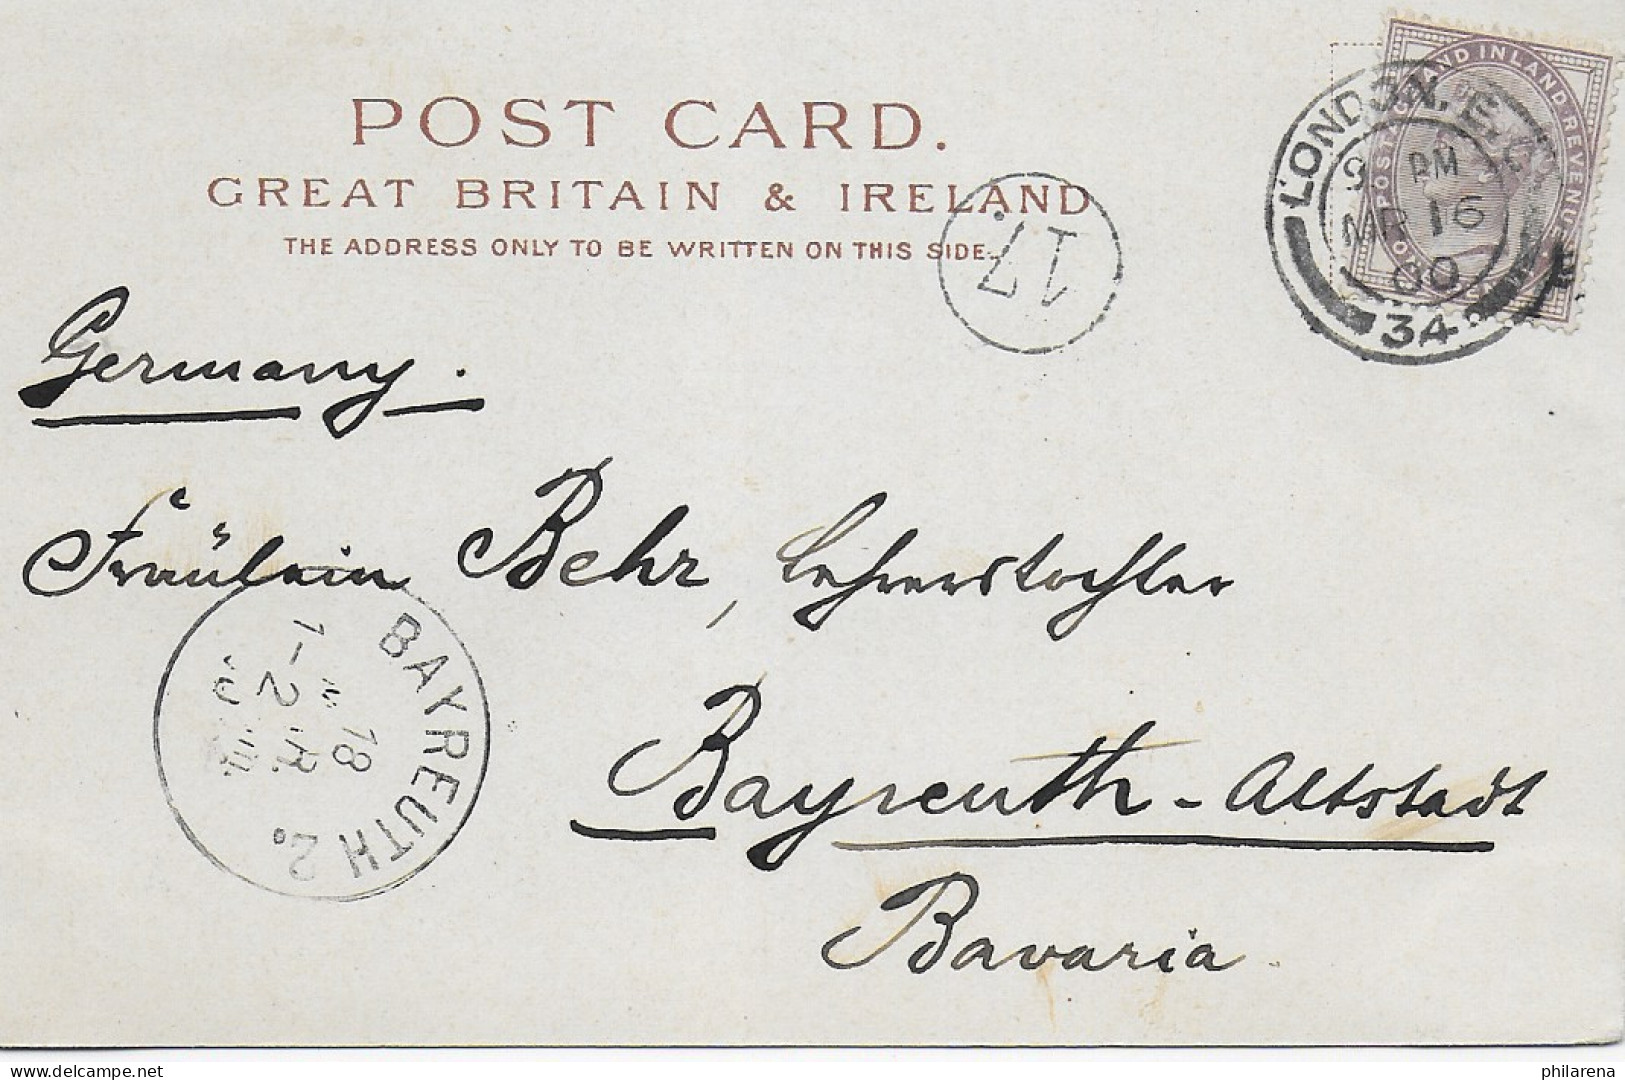 POST CARD.
GREAT BRITAIN & IRELAND
THE ADDRESS ONLY TO BE WRITTEN ON THIS SIDE.
POSTAGE AND INLAND REVENUE
LONDON, E.C
9 PM
MR 16
00
34
17.
Germany.
Fräulein Behr, Lehrerstochter
BAYREUTH 2.
18
1-2
Bayreuth-Altstadt
Bavaria.
www.delcampe.net
philarena